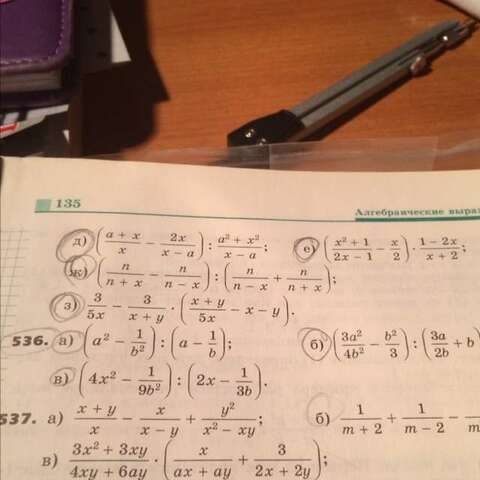 135
Алгебраические выра
д) ((a + x)/x − 2x/(x − a)) : (a² + x²)/(x − a); е) ((x² + 1)/(2x − 1) − x/2) · (1 − 2x)/(x + 2);
ж) (n/(n + x) − n/(n − x)) : (n/(n − x) + n/(n + x));
з) 3/(5x) − 3/(x + y) · ((x + y)/(5x) − x − y).
536. а) (a² − 1/b²) : (a − 1/b); б) (3a²/(4b²) − b²/3) : (3a/(2b) + b)
в) (4x² − 1/(9b²)) : (2x − 1/(3b)).
537. а) (x + y)/x − x/(x − y) + y²/(x² − xy); б) 1/(m + 2) + 1/(m − 2) −
в) (3x² + 3xy)/(4xy + 6ay) · (x/(ax + ay) + 3/(2x + 2y));